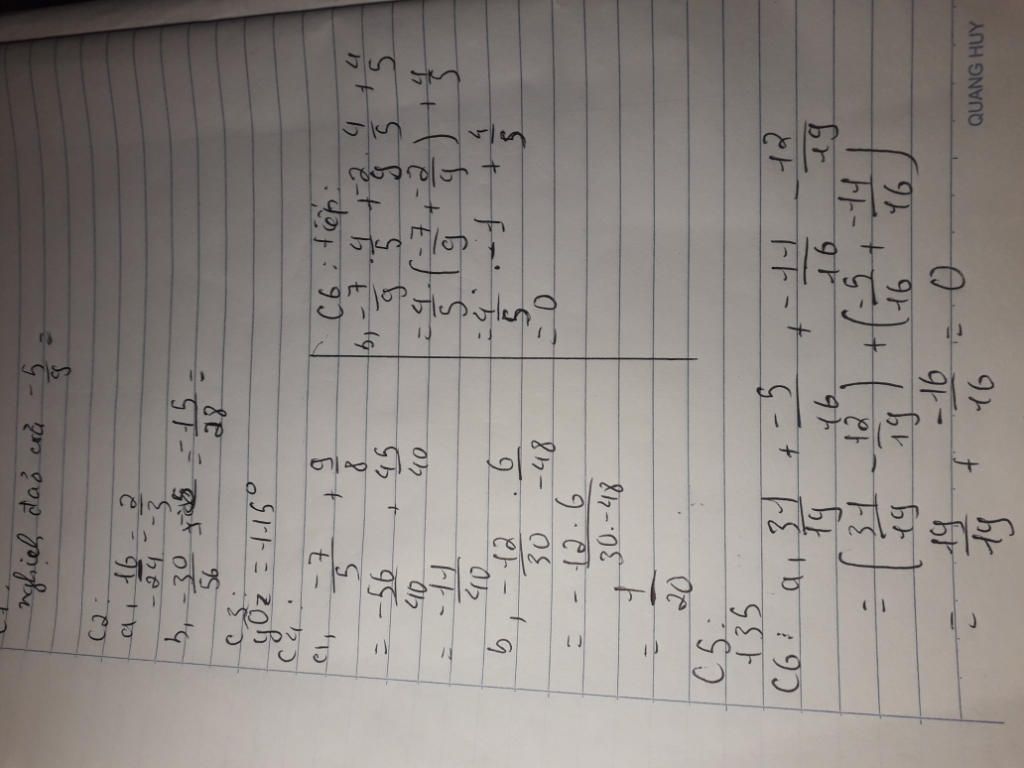 C1:
nghịch đảo của -5/9 =
C2:
a, 16/-24 = -2/-3
b, -30/56 = -15/28 =
C3:
yOz = 115°
C4:
a, -7/5 + 9/8
= -56/40 + 45/40
= -11/40
b, -12/30 . 6/-48
= -12.6/30.-48
= 1/20
C5:
135
C6: a, 31/19 + -5/16 + -11/16 - 12/19
= (31/19 - 12/19) + (-5/16 + -11/16)
= 19/19 + -16/16 = 0
C6: tiếp:
b, -7/9 . 4/5 + -2/9 . 4/5 + 4/5
= 4/5 . (-7/9 + -2/9) + 4/5
= 4/5 . -1 + 4/5
= 0
QUANG HUY